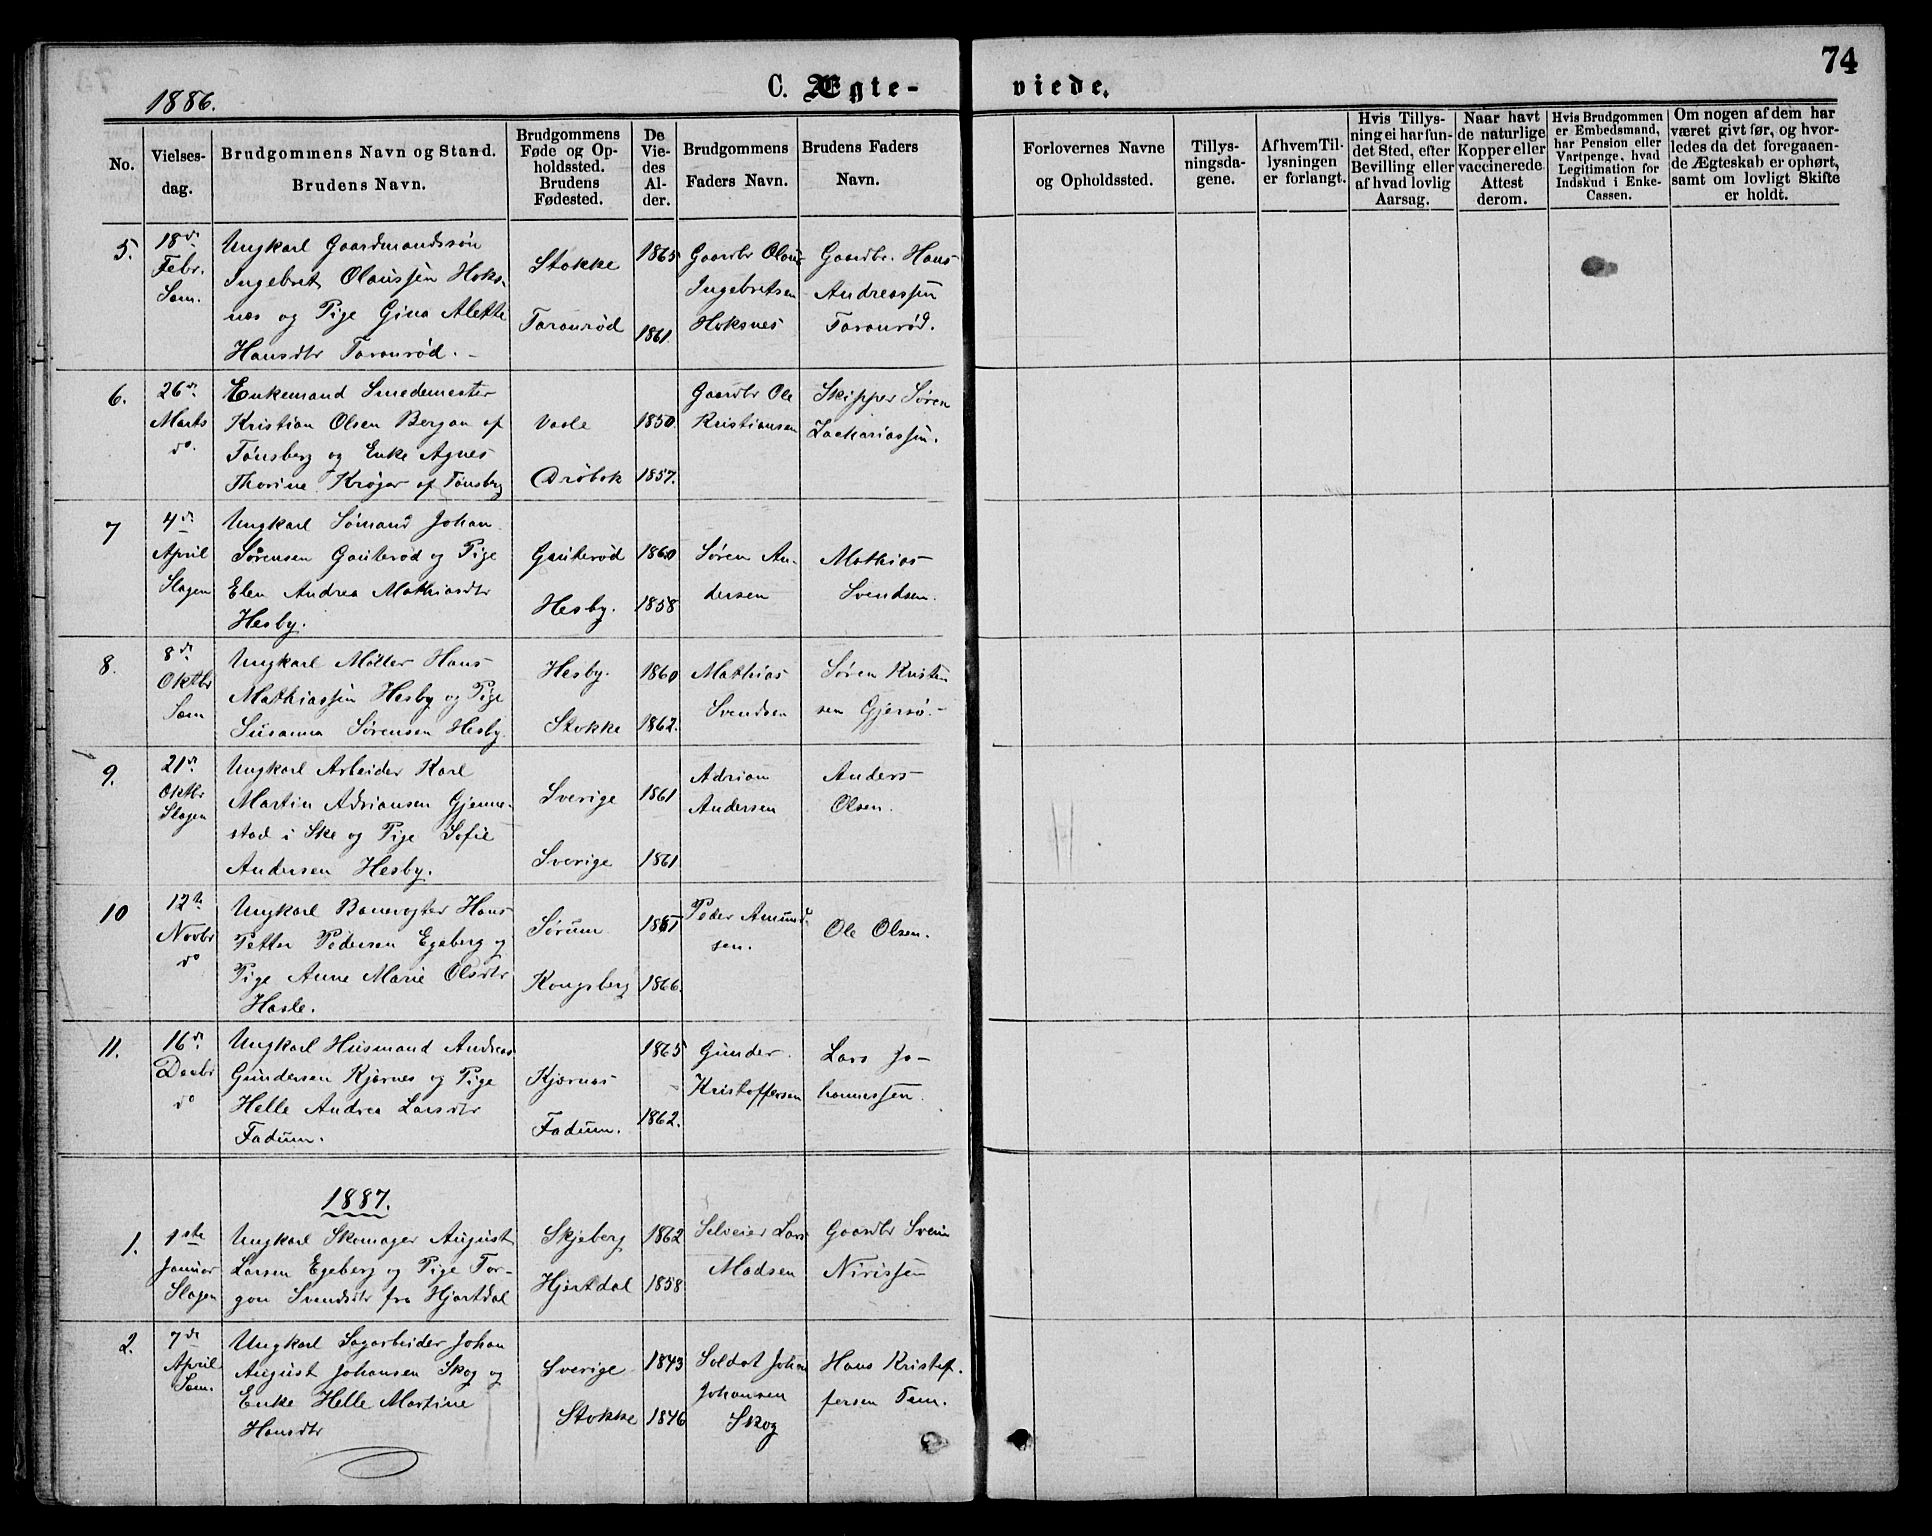 74
1886.
C. Ægte-
viede.
No.
Vielses-
dag.
Brudgommens Navn og Stand.
Brudens Navn.
Brudgommens
Føde og Op-
holdssted.
Brudens
Fødested.
De
Vie-
des
Al-
der.
Brudgommens
Faders Navn.
Brudens Faders
Navn.
Forlovernes Navne
og Opholdssted.
Tillys-
ningsda-
gene.
Af hvem Til-
lysningen
er forlangt.
Hvis Tillys-
ning ei har fun-
det Sted, efter
Bevilling eller
af hvad lovlig
Aarsag.
Naar havt
de naturlige
Kopper eller
vaccinerede
Attest
derom.
Hvis Brudgommen
er Embedsmand,
har Pension eller
Vartpenge, hvad
Legitimation for
Indskud i Enke-
Cassen.
Om nogen af dem har
været givt før, og hvor-
ledes da det foregaaen-
de Ægteskab er ophørt,
samt om lovligt Skifte
er holdt.
5.
18de
Febr.
Sem.
Ungkarl Gaardmandssøn
Ingebret Olaussen Hoks-
næs og Pige Gina Alette
Hansdtr Taranrød.
Stokke
Taranrød
1865
1861
Gaardbr Olaus
Ingebretsen
Hoksnes
Gaardbr. Hans
Andreassen
Taranrød.
6.
26de
Marts
do.
Enkemand Smedemester
Kristian Olsen Bergan af
Tønsberg og Enke Agnes
Thorine Krøger af Tønsberg
Vaale
Drøbak
1850
1857.
Gaardbr Ole
Kristiansen
Skipper Søren
Zachariassen.
7
4de
April
Slagen
Ungkarl Sømand Johan
Sørensen Gauterød og Pige
Elen Andrea Mathiasdtr
Hesby.
Gauterød
Hesby.
1860
1858
Søren An-
dersen
Mathias
Svendsen.
8.
8de
Oktbr
Sem
Ungkarl Møller Hans
Mathiassen Hesby og Pige
Susanna Sørensen Hesby.
Hesby.
Stokke
1860
1862.
Mathias
Svendsen
Søren Kristen
sen Gjersø.
9.
21de
Oktbr
Slagen
Ungkarl Arbeider Karl
Martin Adriansen Gjenne-
stad i Ske og Pige Sofie
Andersen Hesby.
Sverige
Sverige
1861
1861
Adrian
Andersen
Anders
Olsen.
10
12te
Novbr
do
Ungkarl Banevogter Hans
Petter Pedersen Egeberg og
Pige Anne Marie Olsdtr
Hasle.
Sørum
Kongsberg
1866.
Peder Amund
sen.
Ole Olsen.
11.
16de
Decbr
do
Ungkarl Husmand Andreas
Gundersen Kjærnes og Pige
Helle Andrea Larsdtr
Fadum.
Kjærnæs
Fadum.
1865
1862.
Gunder
Kristoffersen
Lars Jo-
hannessen.
1887.
1.
1ste
Januar
Slagen
Ungkarl Skomager August
Larsen Egeberg og Pige Tor-
gon Svendsdtr fra Hjartdal
Skjeberg
Hjartdal
1862
1858
Selveier Lars
Madsen
Gaardbr Svein
Nirissen
2.
7de
April
Sem.
Ungkarl Sagarbeider Johan
August Johansen Skog og
Enke Helle Martine
Hansdtr
Sverige
Stokke
1843
1846
Soldat Johan
Johansen
Skog
Hans Kristof-
fersen Tem.